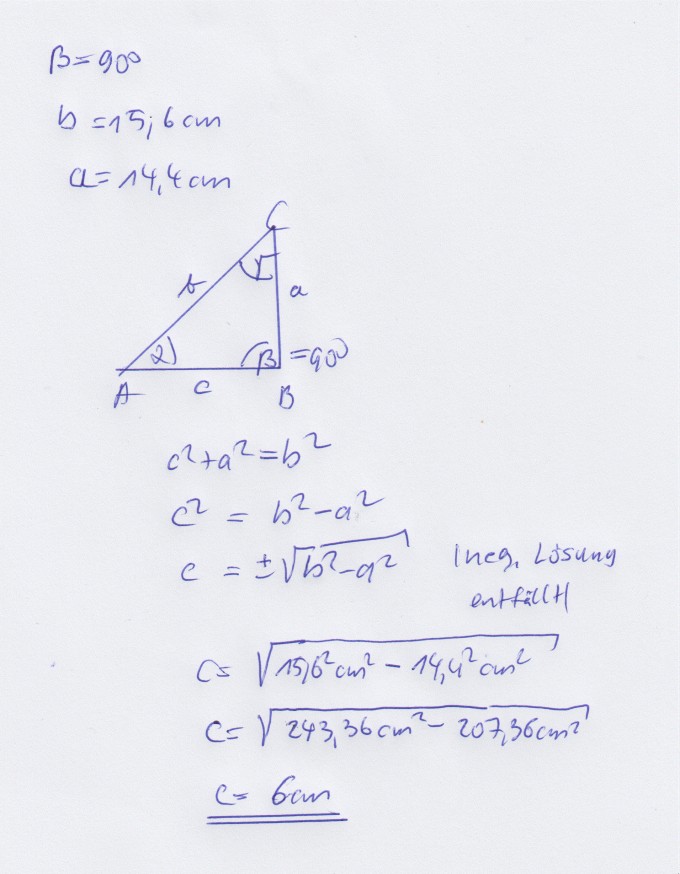 β=90°
b=15,6cm
a=14,4cm
C
γ
b
a
α
β=90°
A
c
B
c²+a²=b²
c² = b²-a²
c = ±√b²-a² | neg. Lösung
entfällt|
c= √15,6²cm² - 14,4²cm²
c= √243,36cm² - 207,36cm²
c= 6cm